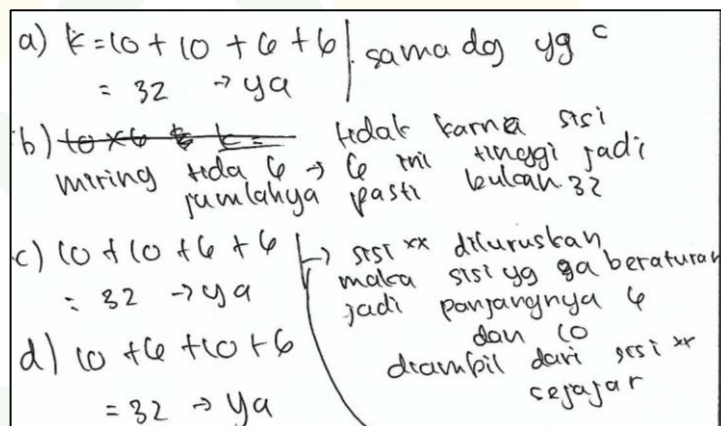 a) k = 10 + 10 + 6 + 6 | sama dg yg c
= 32 → ya
b) tidak karna sisi
miring tida 6 → 6 ini tinggi jadi
jumlahya pasti bukan 32
c) 10 + 10 + 6 + 6 → sisi xx diluruskan
= 32 → ya maka sisi yg ga beraturan
jadi panjangnya 6
dan 10
d) 10 + 6 + 10 + 6 diambil dari sisi xx
sejajar
= 32 → ya